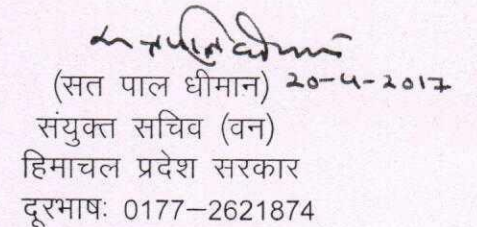 (सत पाल धीमान) 20-4-2017
संयुक्त सचिव (वन)
हिमाचल प्रदेश सरकार
दूरभाषः 0177–2621874